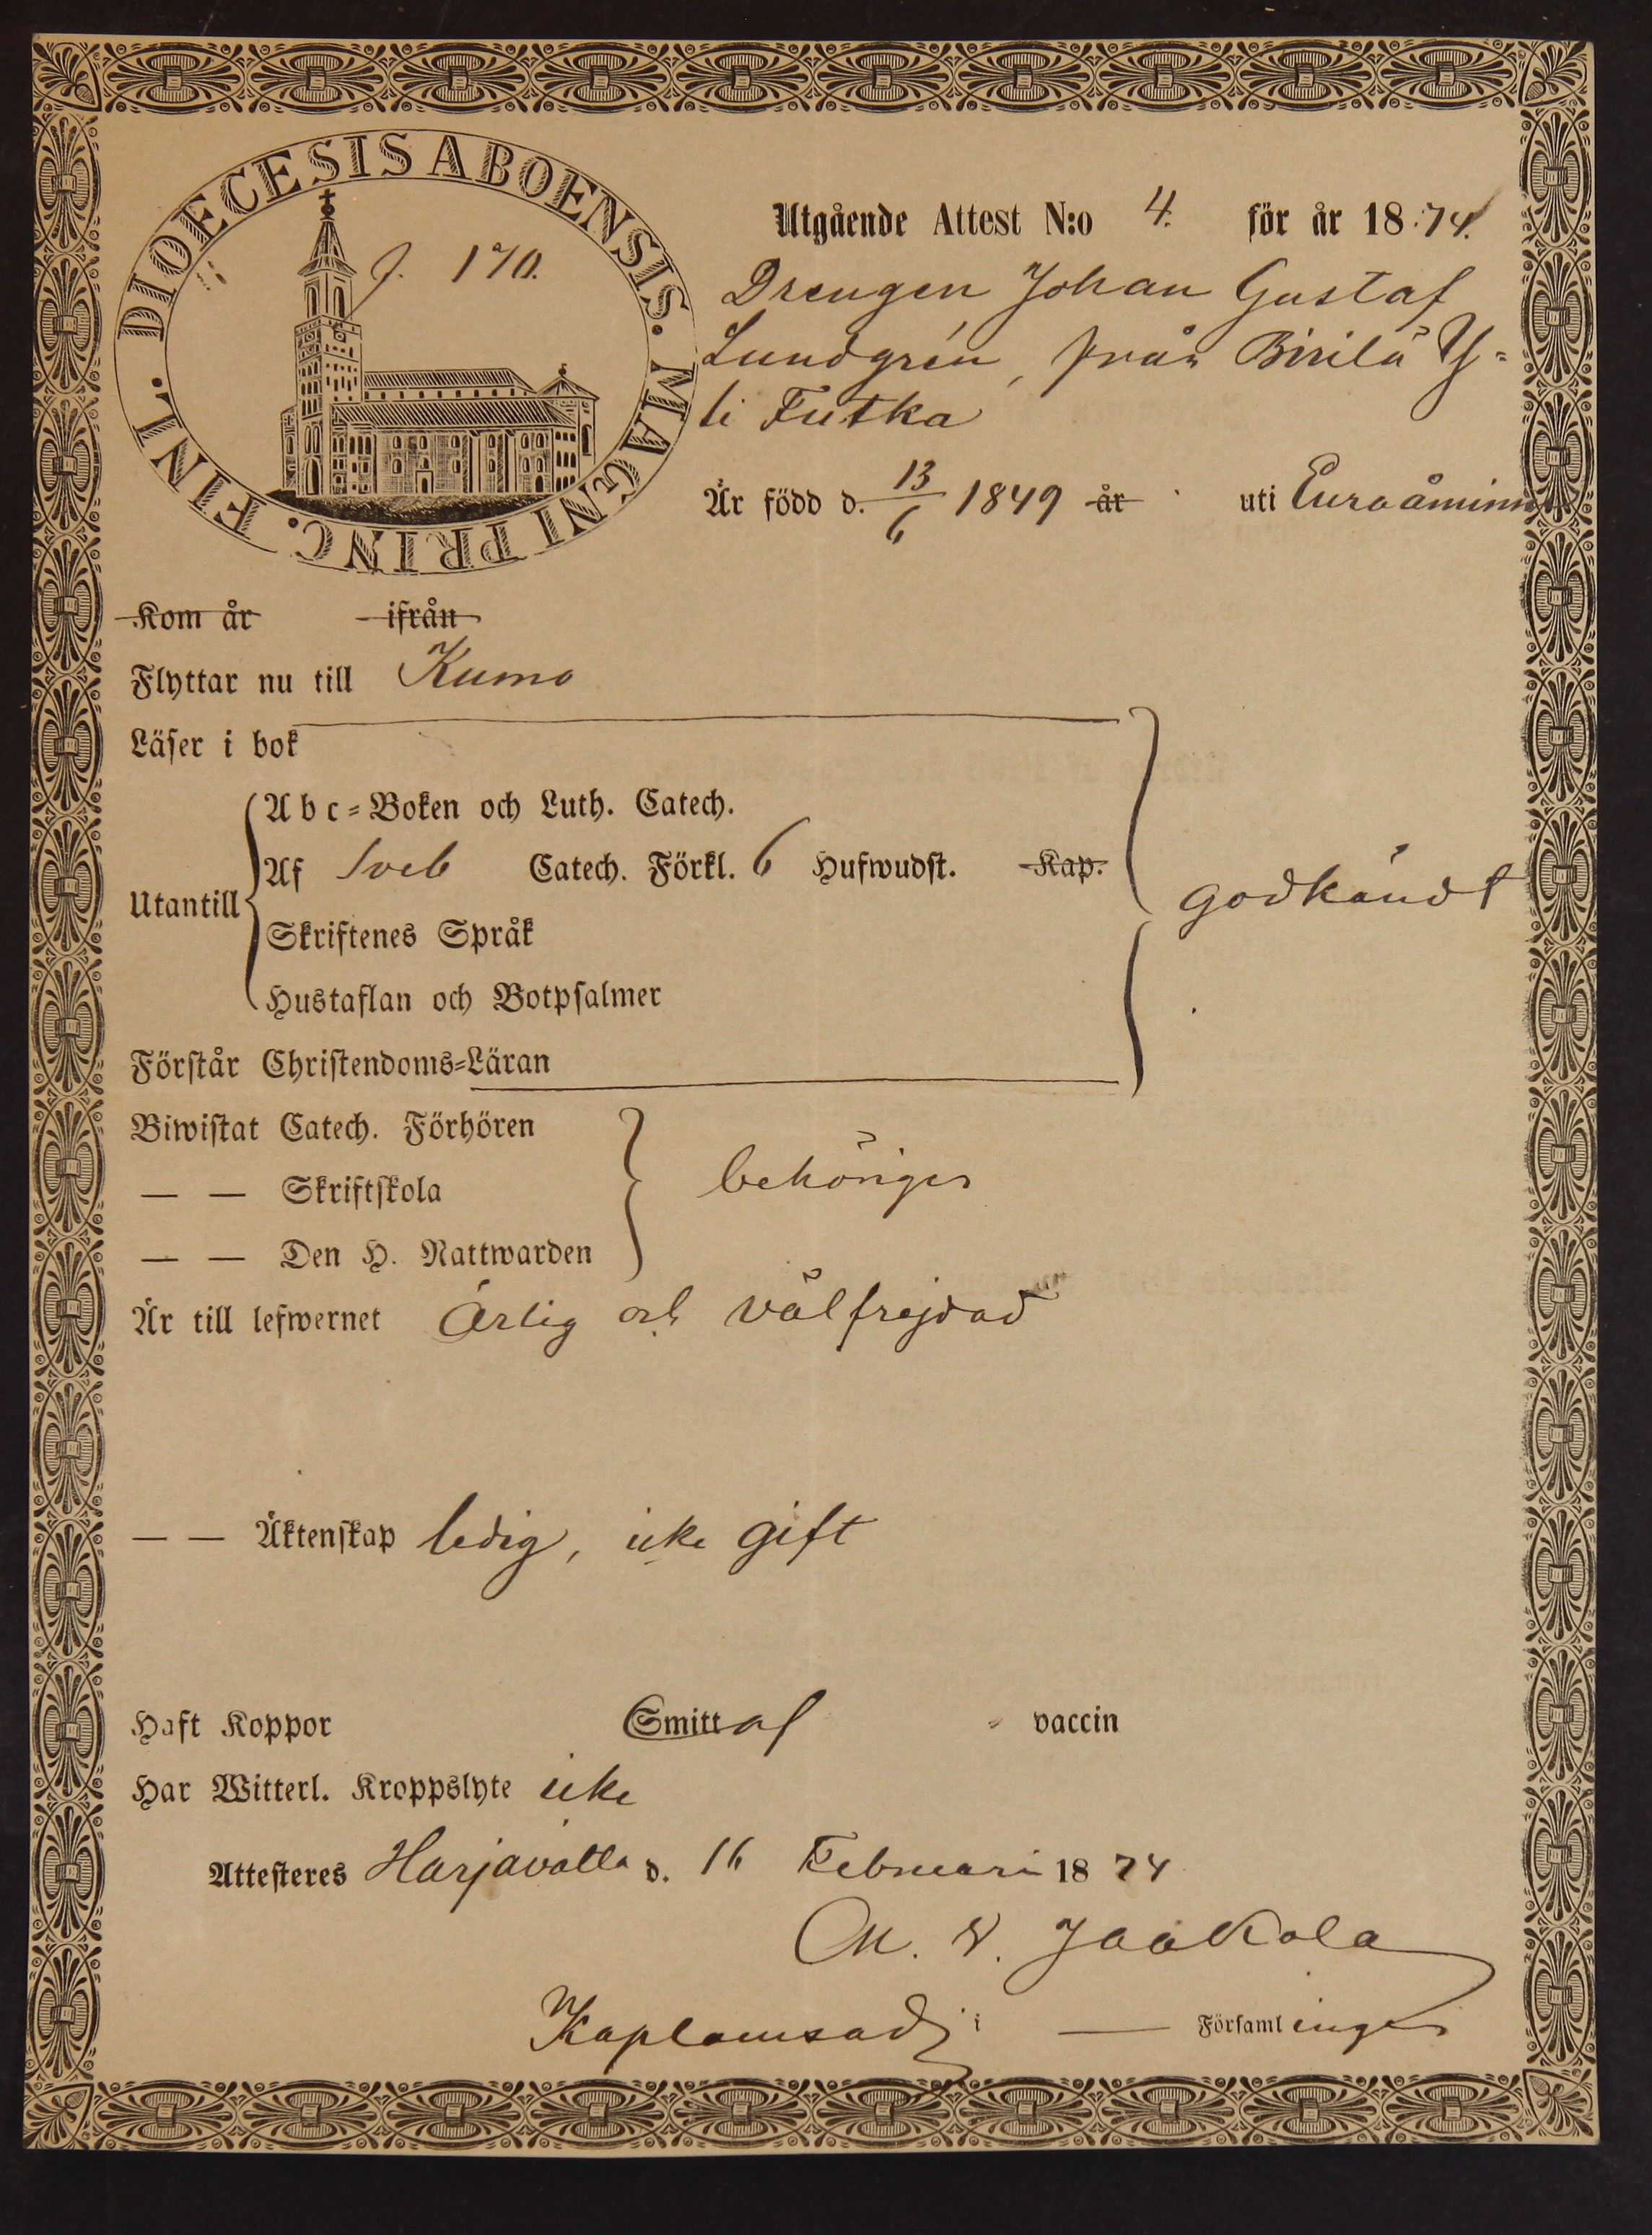 DIOECESIS ABOENSIS. MAGNI PRINC. FINL.
p. 170.
Utgående Attest N:o 4. för år 1874.
Drengen Johan Gustaf
Lundgrén, från Birilä Y=
li Futka
Är född d. 13/6 1849 år uti Euraåminn
Kom år ifrån
Flyttar nu till Kumo
Läser i bok
Utantill
Abc=Boken och Luth. Catech.
Af Sveb Catech. Förkl. 6 Hufwudst. Kap.
Skriftenes Språk
Hustaflan och Botpsalmer
godkändt
Förstår Christendoms=Läran
Biwistat Catech. Förhören
— — Skriftskola
— — Den H. Nattwarden
behörigen
Är till lefwernet Ärlig och välfrejdad
— — Äktenskap ledig, icke gift
Haft Koppor Smitt af vaccin
Har Witterl. Kroppslyte icke
Attesteres Harjavalla d. 16 Februari 1874
M. V. Jaakola
Kaplansadj i — Församlingen